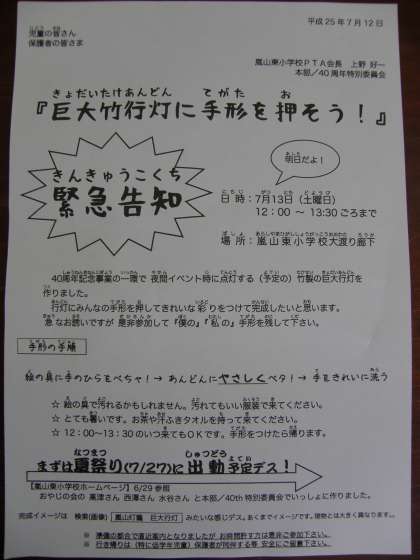 平成25年7月12日
児童の皆さん
保護者の皆さま
嵐山東小学校PTA会長 上野 好一
本部/40周年特別委員会
きょだいたけあんどん てがた お
『巨大竹行灯に手形を押そう!』
きんきゅうこくち
緊急告知
明日だよ!
日時:7月13日(土曜日)
12:00 ~ 13:30ごろまで
場所:嵐山東小学校大渡り廊下
40周年記念事業の一環で 夜間イベント時に点灯する(予定の)竹製の巨大行灯を
作りました。
行灯にみんなの手形を押してきれいな彩りをつけて完成したいと思います。
急なお誘いですが 是非参加して『僕の』『私の』手形を残して下さい。
手形の手順
絵の具に手のひらをべちゃ!→ あんどんにやさしくペタ!→ 手をきれいに洗う
☆ 絵の具で汚れるかもしれません。汚れてもいい服装で来てください。
☆ とても暑いです。お茶や汗ふきタオルを持って来てください。
☆ 12:00~13:30のいつ来てもOKです。手形をつけたら帰ります。
まずは夏祭り(7/27)に出動予定デス!
【嵐山東小学校ホームページ】6/29参照
おやじの会の 高津さん 西澤さん 水谷さん と本部/40th特別委員会でいっしょに作りました。
完成イメージは 検索(画像) 嵐山灯籠 巨大行灯 みたいな感じデス。あくまでイメージです。現物とは大きく異なります。
※ 準備の都合で直近案内となりましたが お時間許す方は是非ご参加下さい。
※ 行き帰りは(特に低学年児童)保護者が同伴する等 安全にご留意下さい。